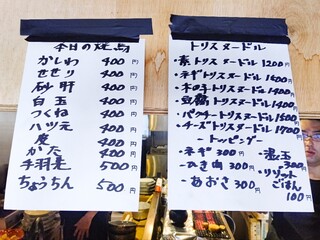 本日の焼鳥
かしわ 400円
せせり 400円
砂肝 400円
白玉 400円
つくね 400円
ハツ元 400円
400円
かた 400円
手羽先 500円
ちょうちん 500円
トリスヌードル
・素トリスヌードル1200円
・ネギトリスヌードル1500円
・木の子トリスヌードル1400円
・豆腐トリスヌードル1400円
・パクチートリスヌードル1500円
・チーズトリスヌードル1700円
トッピング
・ネギ300円
・ひき肉300円
・あおさ300円
・温玉
300円
・リゾット
ごはん
100円